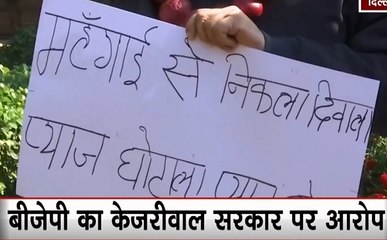 दिल्
महँगाई से निकला दिवाला
प्याज घोटाला
बीजेपी का केजरीवाल सरकार पर आरोप